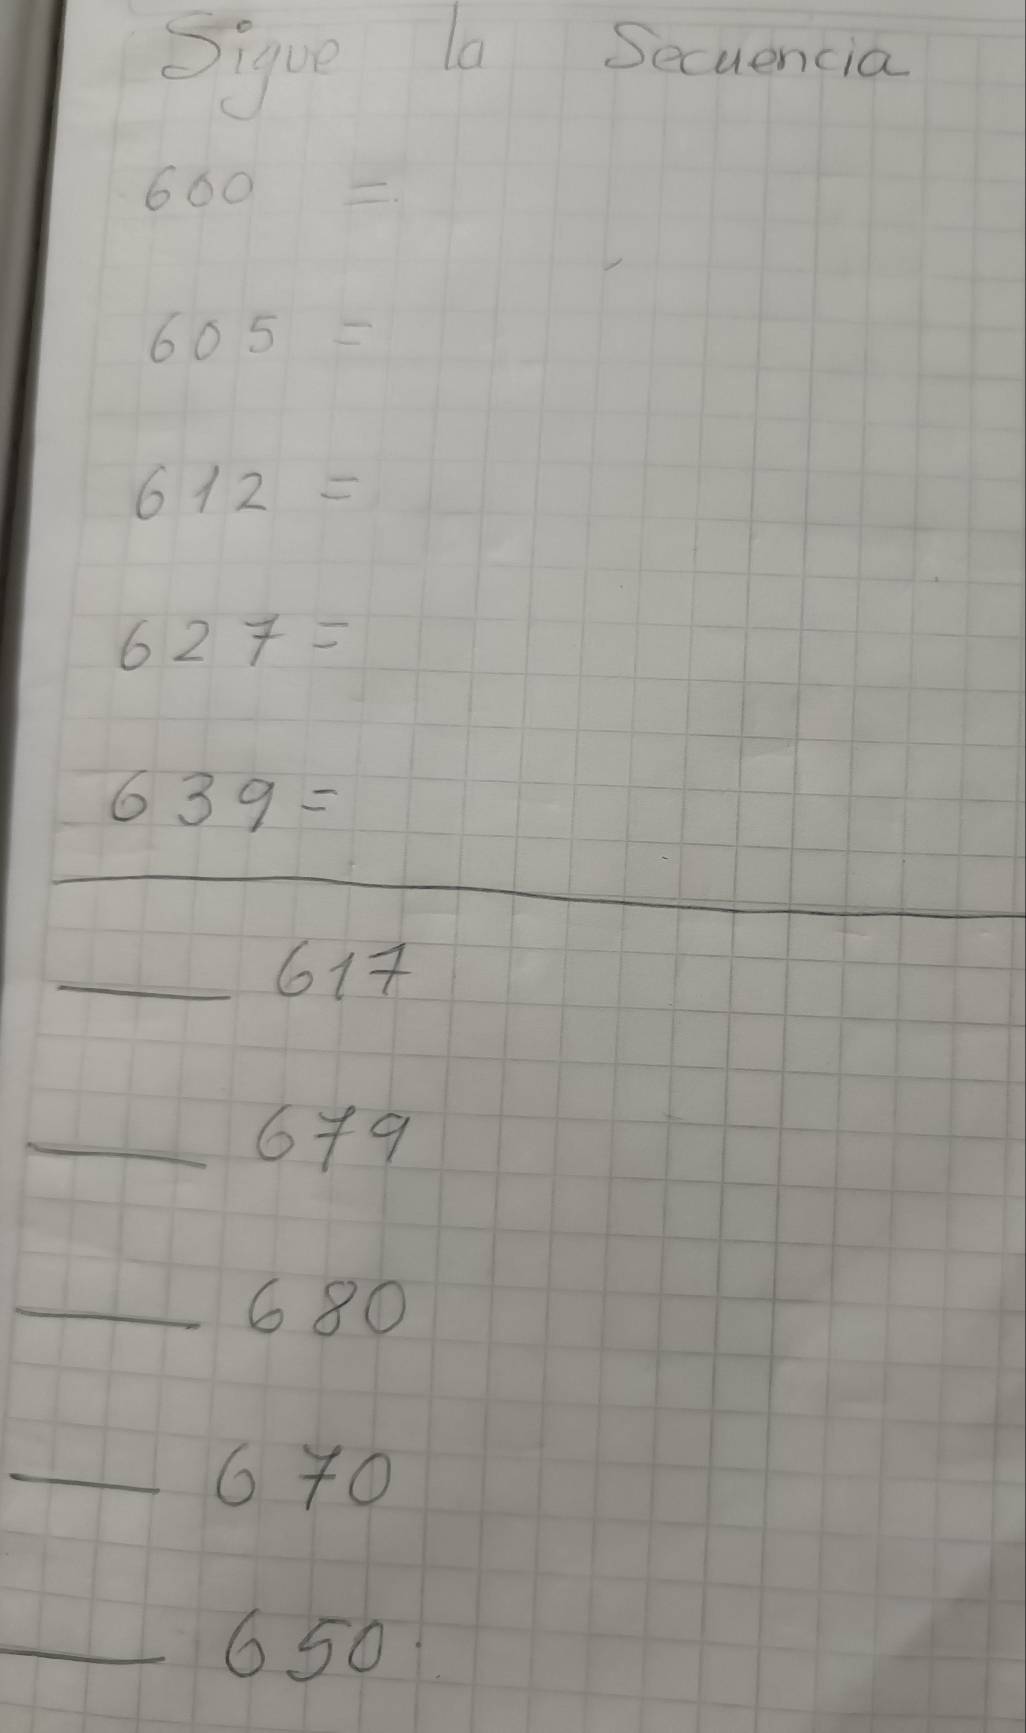 Sigue la Secuencia
600 =
605 =
612 =
627 =
639 =
___ 617
___ 679
___ 680
___ 670
___ 650